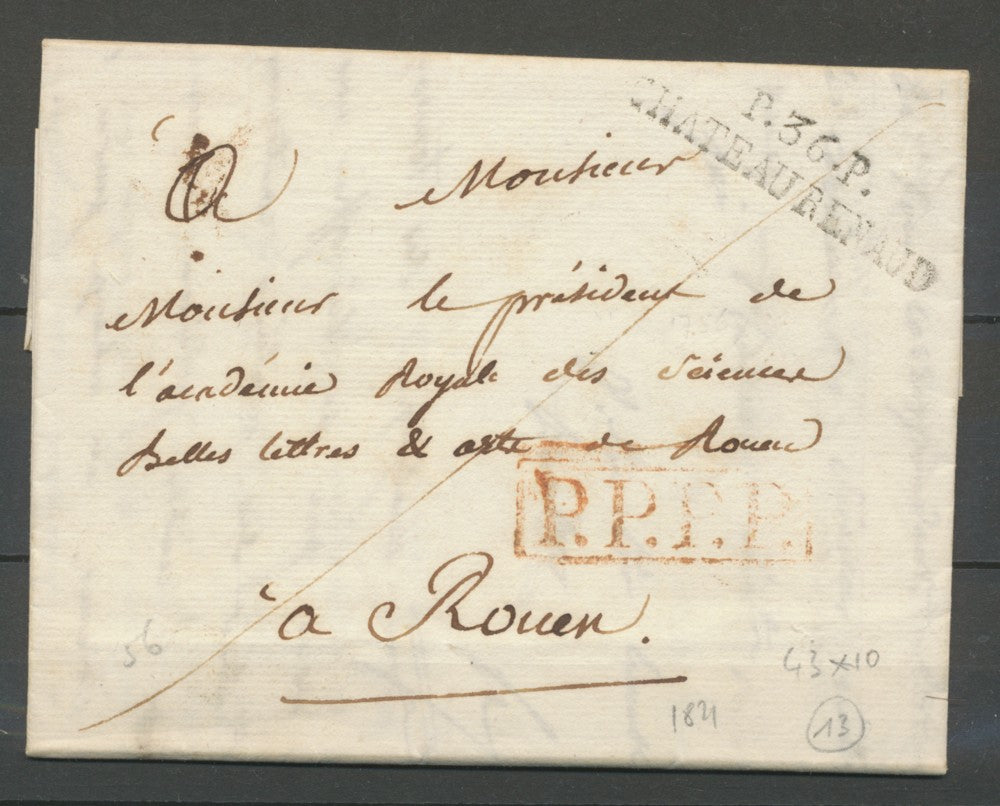 P.36.P.
CHATEAURENAUD
À Monsieur
Monsieur le président de
l'académie Royale des Sciences
Belles lettres & arts de Rouen
P.P.P.P.
à Rouen.
56
43x10
1821
13